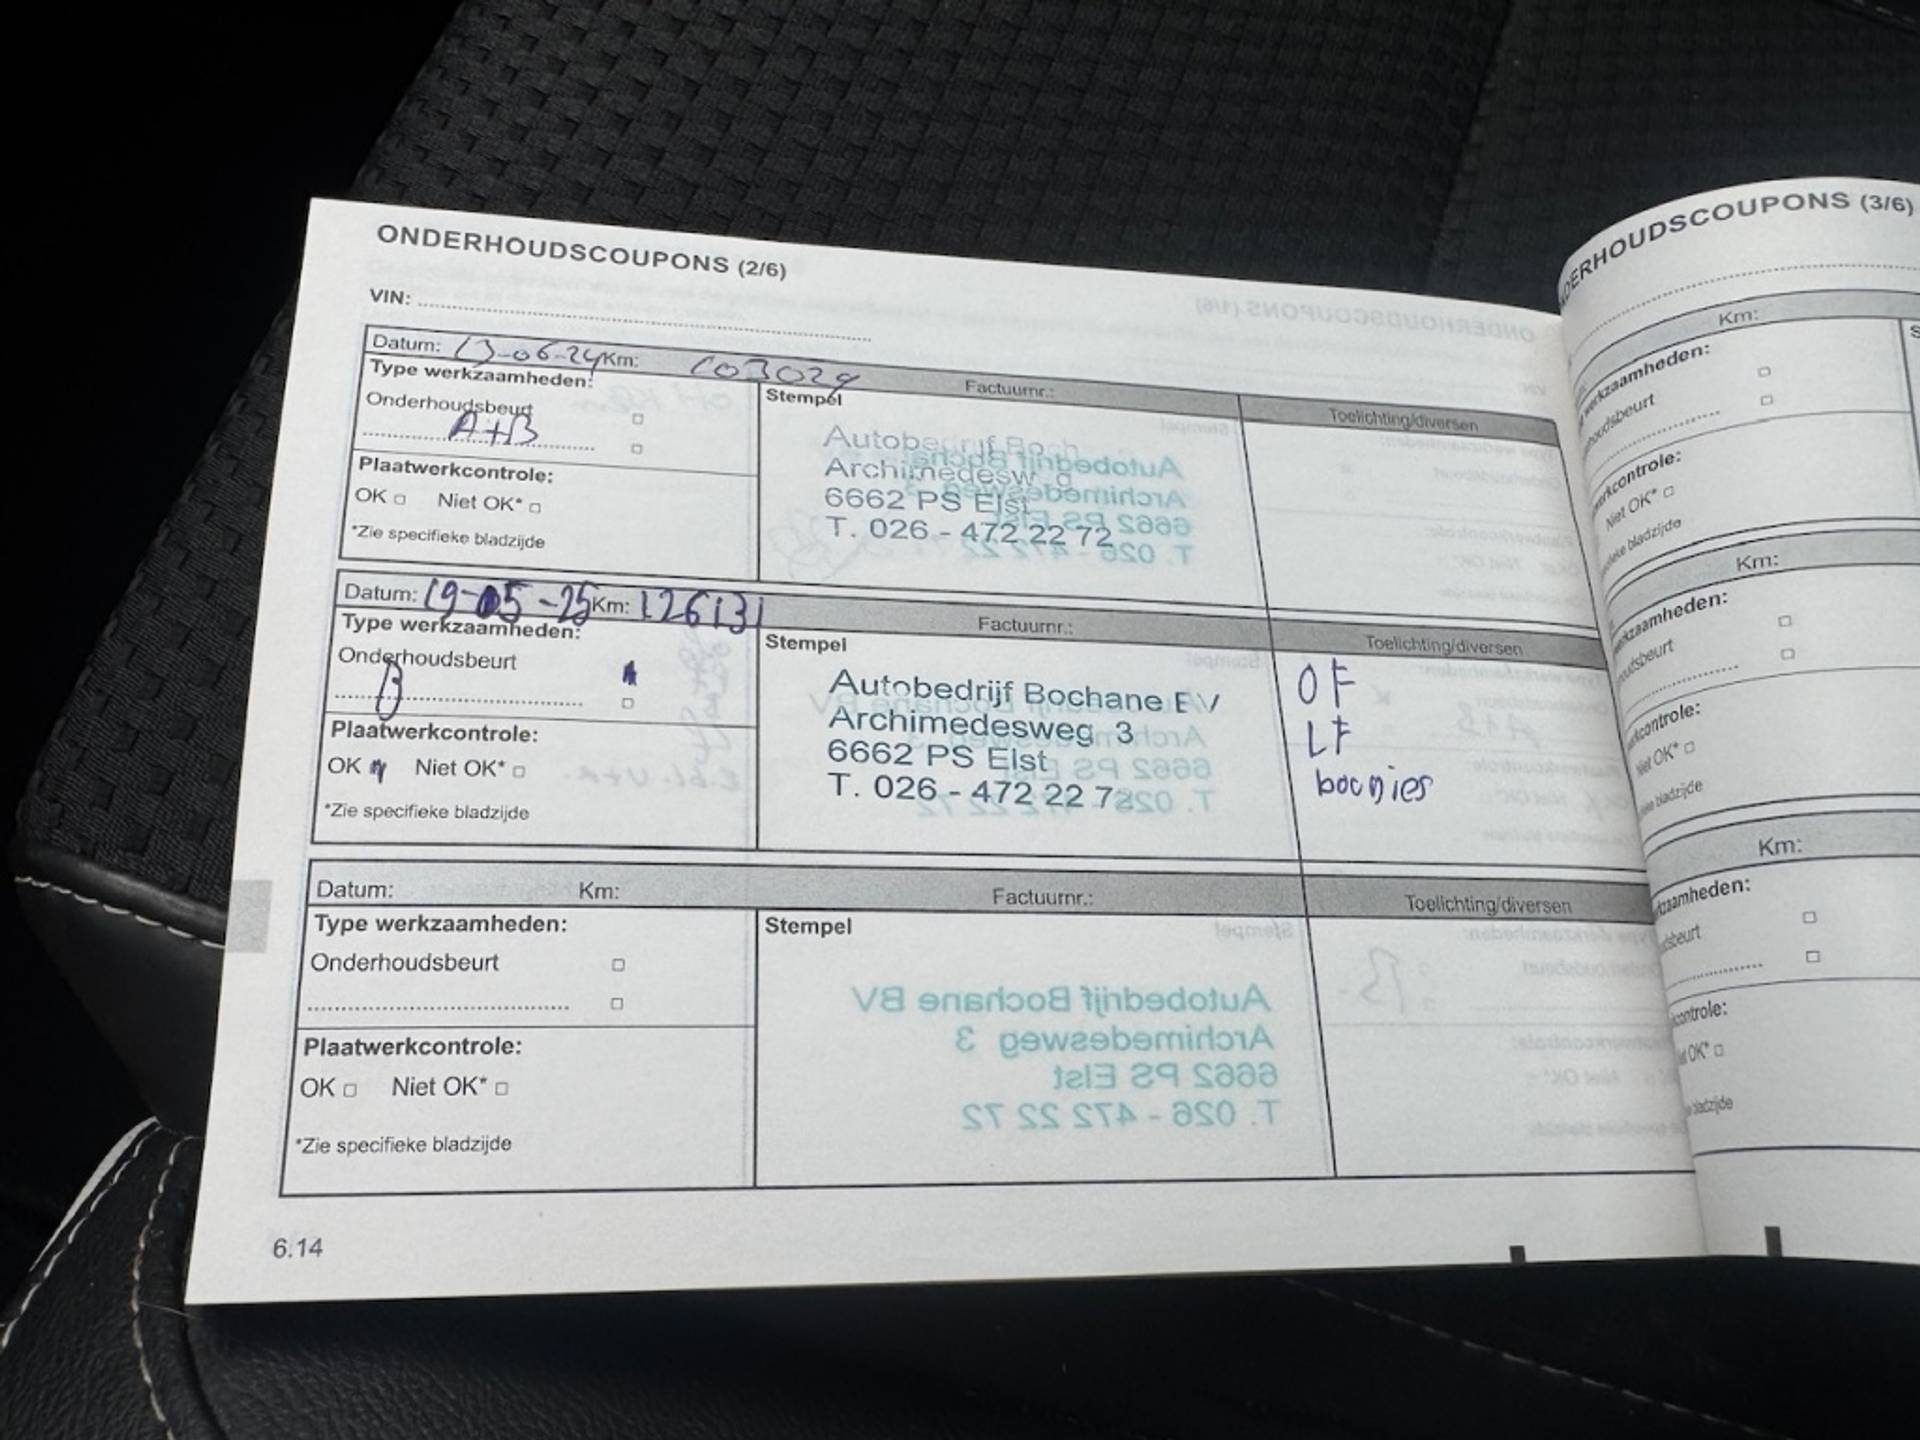 ONDERHOUDSCOUPONS (2/6)
VIN:
Datum: 13-06-24 Km: 103029 Factuurnr.:
Toelichting/diversen
Type werkzaamheden:
Onderhoudsbeurt
A+B
Plaatwerkcontrole:
OK Niet OK*
*Zie specifieke bladzijde
Stempel
Autobedrijf Boch
Archimedesw g
6662 PS Elst
T. 026 - 472 22 72
Datum: 19-05-25 Km: 126131 Factuurnr.:
Toelichting/diversen
Type werkzaamheden:
Onderhoudsbeurt
B
Plaatwerkcontrole:
OK Niet OK*
*Zie specifieke bladzijde
Stempel
Autobedrijf Bochane BV
Archimedesweg 3
6662 PS Elst
T. 026 - 472 22 7
OF
LF
bougies
Datum: Km: Factuurnr.:
Toelichting/diversen
Type werkzaamheden:
Onderhoudsbeurt
Plaatwerkcontrole:
OK Niet OK*
*Zie specifieke bladzijde
Stempel
Autobedrijf Bochane BV
Archimedesweg 3
6662 PS Elst
T. 026 - 472 22 72
6.14
DERHOUDSCOUPONS (3/6)
Km:
werkzaamheden:
houdsbeurt
rkcontrole:
Niet OK*
ieke bladzijde
Km:
kzaamheden:
oudsbeurt
kcontrole:
Niet OK*
ke bladzijde
Km:
zaamheden:
dsbeurt
controle:
OK*
bladzijde